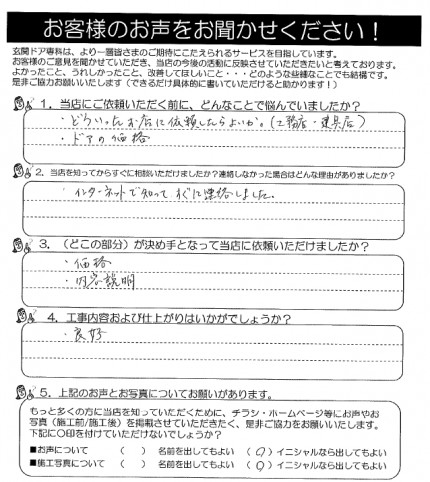 お客様のお声をお聞かせください！
玄関ドア専科は、より一層皆さまのご期待にこたえられるサービスを目指しています。
お客様のご意見を聞かせていただき、当店の今後の活動に反映させていただきたいと考えております。
よかったこと、うれしかったこと、改善してほしいこと・・・どのような些細なことでも結構です。
是非ご協力お願いいたします（できるだけ具体的に書いていただけると助かります！）
1．当店にご依頼いただく前に、どんなことで悩んでいましたか？
・どういったお店に依頼したらよいか。（工務店・建具店）
・ドアの価格
2．当店を知ってからすぐに相談いただけましたか？連絡しなかった場合はどんな理由がありましたか？
・インターネットで知ってすぐに連絡しました。
3．（どこの部分）が決め手となって当店に依頼いただけましたか？
・価格
・内容説明
4．工事内容および仕上がりはいかがでしょうか？
・良好
5．上記のお声とお写真についてお願いがあります。
もっと多くの方に当店を知っていただくために、チラシ・ホームページ等にお声やお
写真（施工前/施工後）を掲載させていただきたく、是非ご協力をお願いいたします。
下記に〇印を付けていただけないでしょうか？
■お声について （ ） 名前を出してもよい （〇）イニシャルなら出してもよい
■施工写真について （ ） 名前を出してもよい （〇）イニシャルなら出してもよい